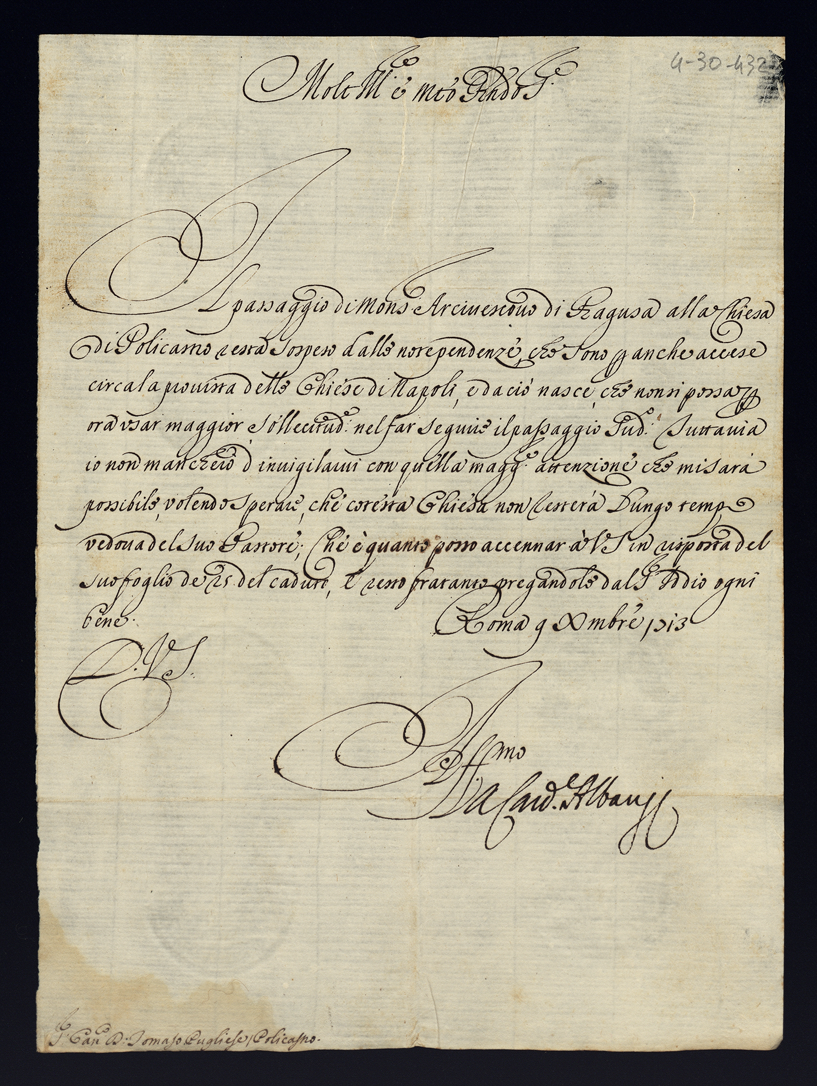 Molt Ill.e e mto Rndo S.re
4-30-432
Il passaggio di Mons.r Arcivescovo di Ragusa alla Chiesa
di Policastro resta sospeso dalle
che sono p anche accese
circa la provista delle Chiese di Napoli, e da ciò nasce, che non si possa p
ora usar maggior sollecitud.e nel far seguire il passaggio sud.o Tuttavia
io non mancherò d'invigilarvi con quella magg.r attenzione che mi sarà
possibile, volendo sperare, che cotesta Chiesa non resterà lungo tempo
vedova del suo Pastore; Che è quanto posso accennar à VS in risposta del
suo foglio de 25 del caduto, e resto fratanto pregandole dal S. Iddio ogni
bene. Roma 9 Xmbre 1713
D. VS.
Aff.mo
Card. Albani
S.r Can.co D. Tomaso Pugliese Policastro.